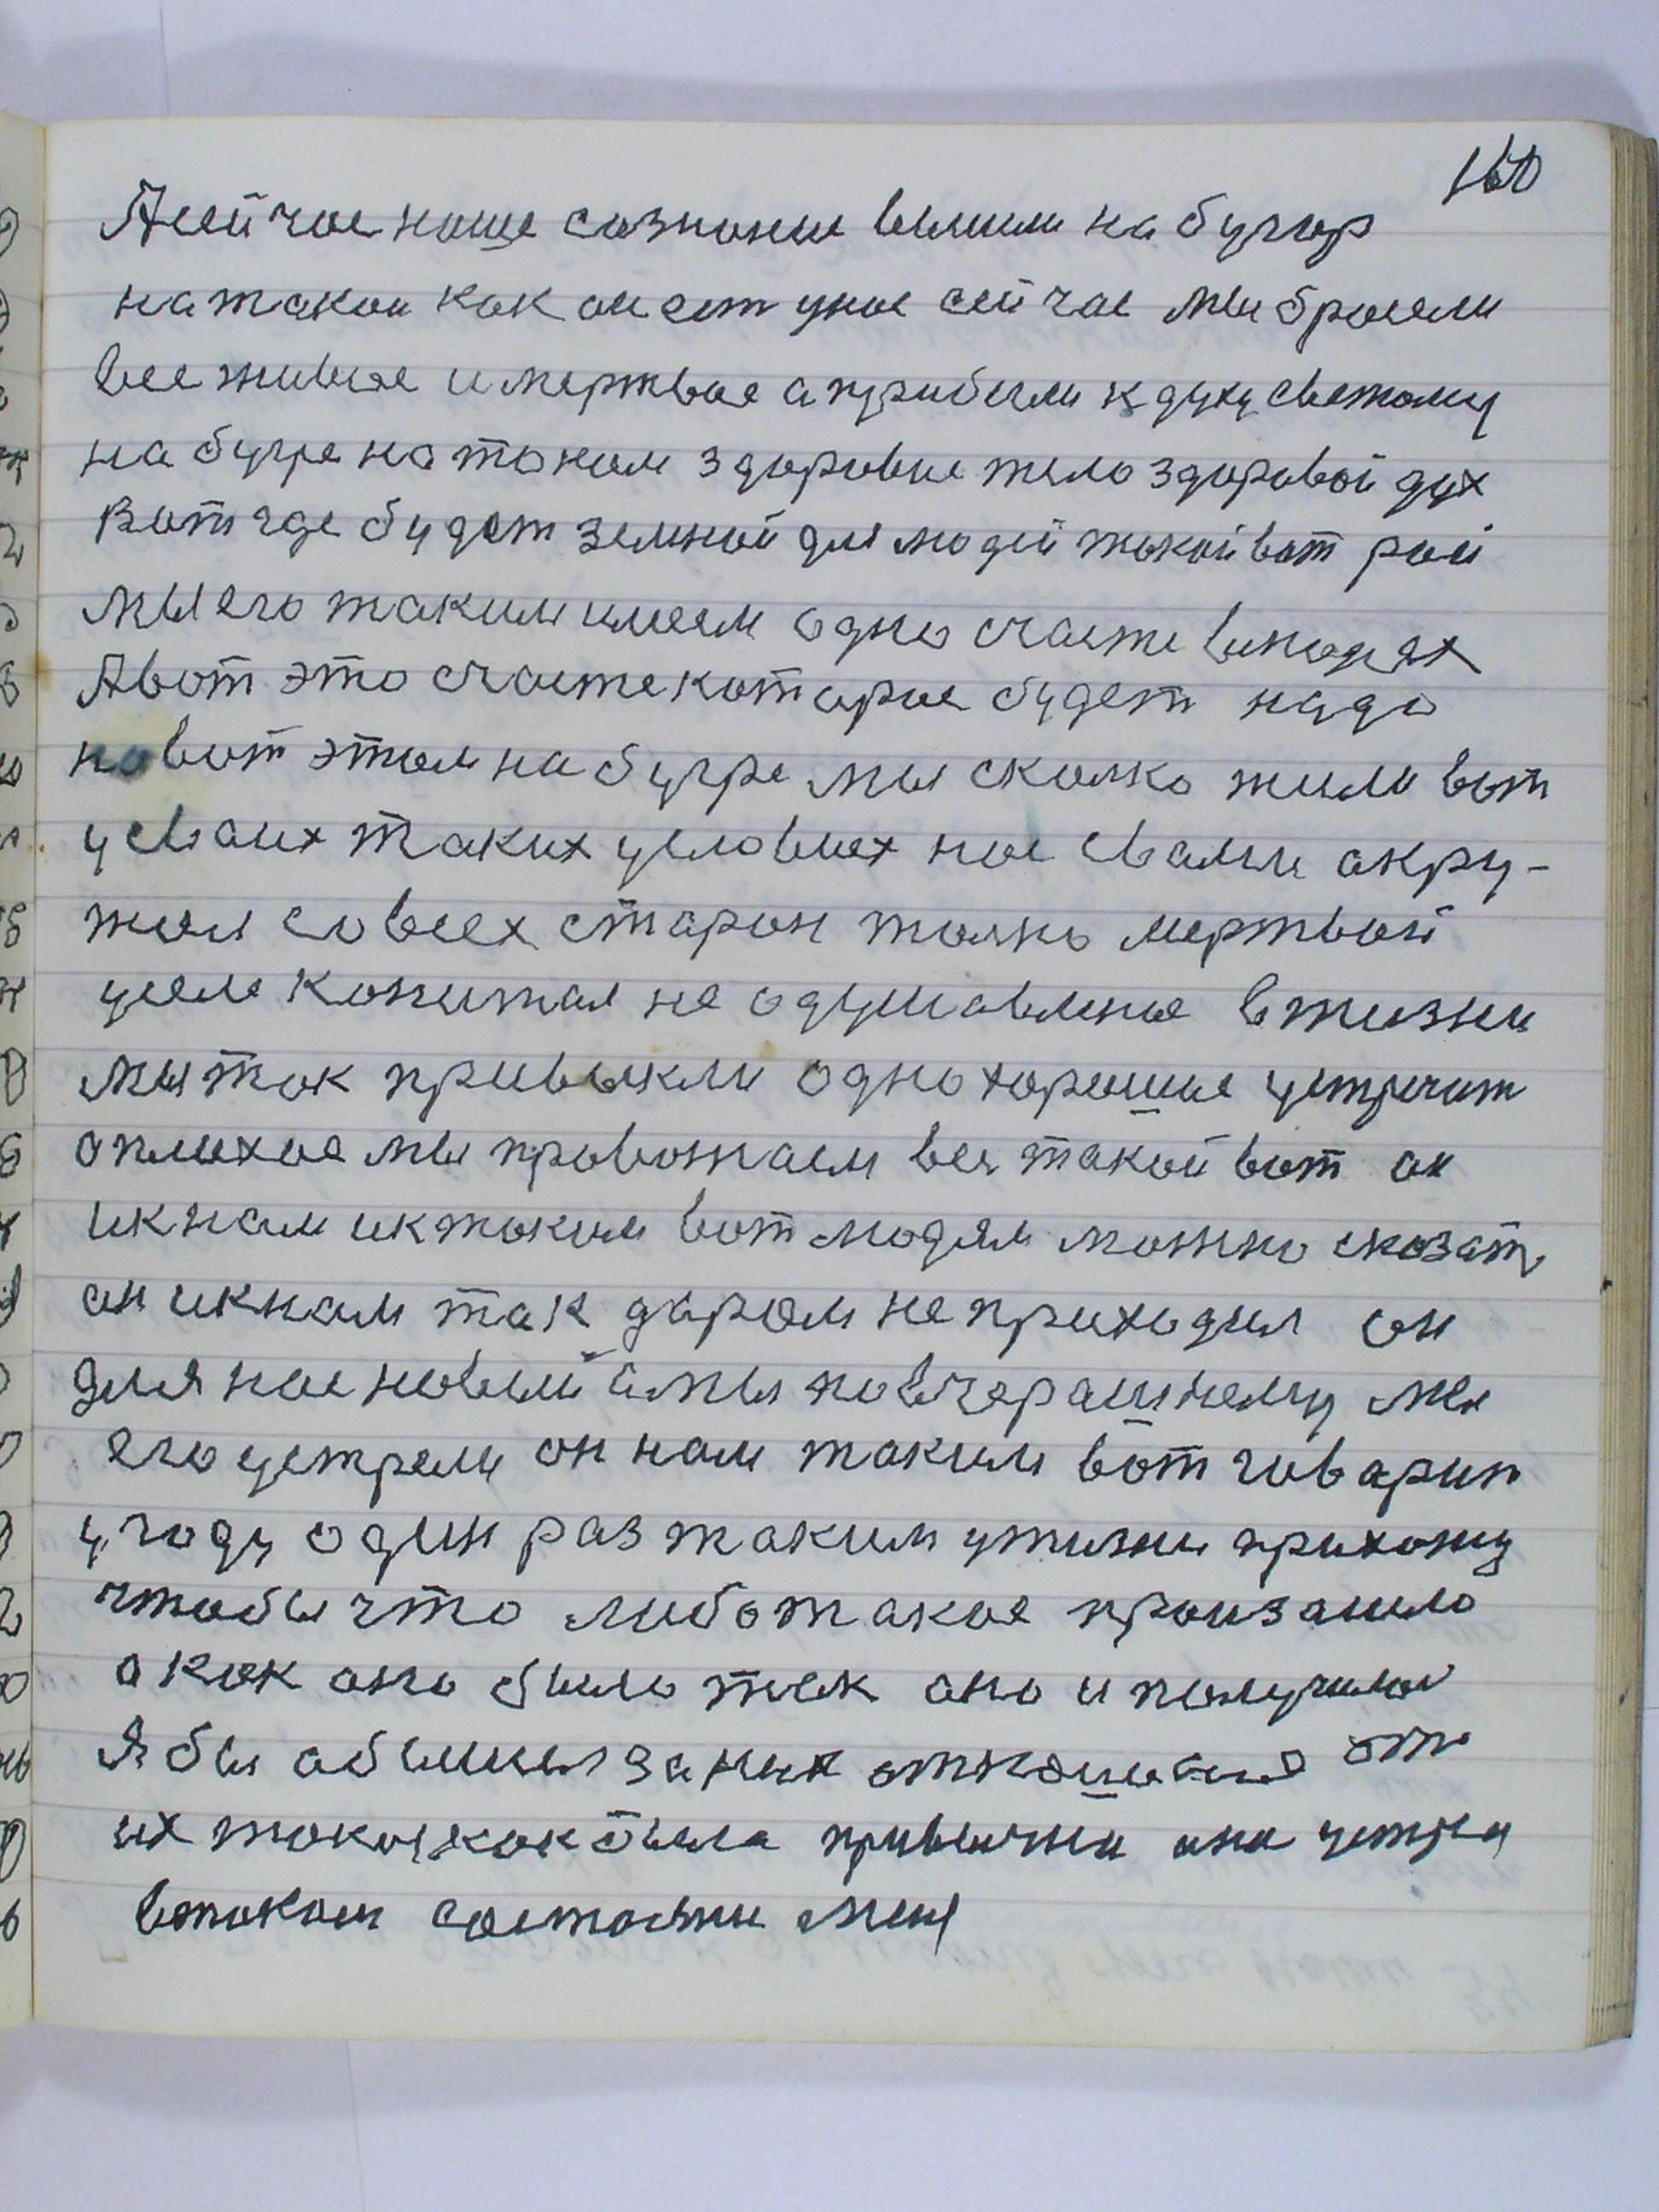 160
Асейчас наше сазнание вышли на бугор
на такои как он ест унас сейчас мы бросели
все живое имертвае априбегли к духу светому
на бугре на таком здоровие тело здоровой дух
Вот где будет земной для людей такой вот рай
мы его таким имеем одно счасте влюдях
Авот это счасте каторае будет надо
на вот этом на бугре мы сколко жили вот
у своих таких условиях нас свами акру-
жал со всех старон толко мертвай
усем капитал не одушавленае вжизни
мы так привыкли одно харошие устречат
аплихое мы провожаем вег такой вот он
икнам иктаким вот людям можно сказат
он икнам так даром неприходил он
для нас новый амы повчерашнему мы
его устрели он нам таким вот гаварил
угоду один раз таким ужизни прихожу
чтобы что либо такое произашло
акак ано было так ано и получилас
Я бы абишил за них от
их такая как была привычка они устре
втаком состаянии меня